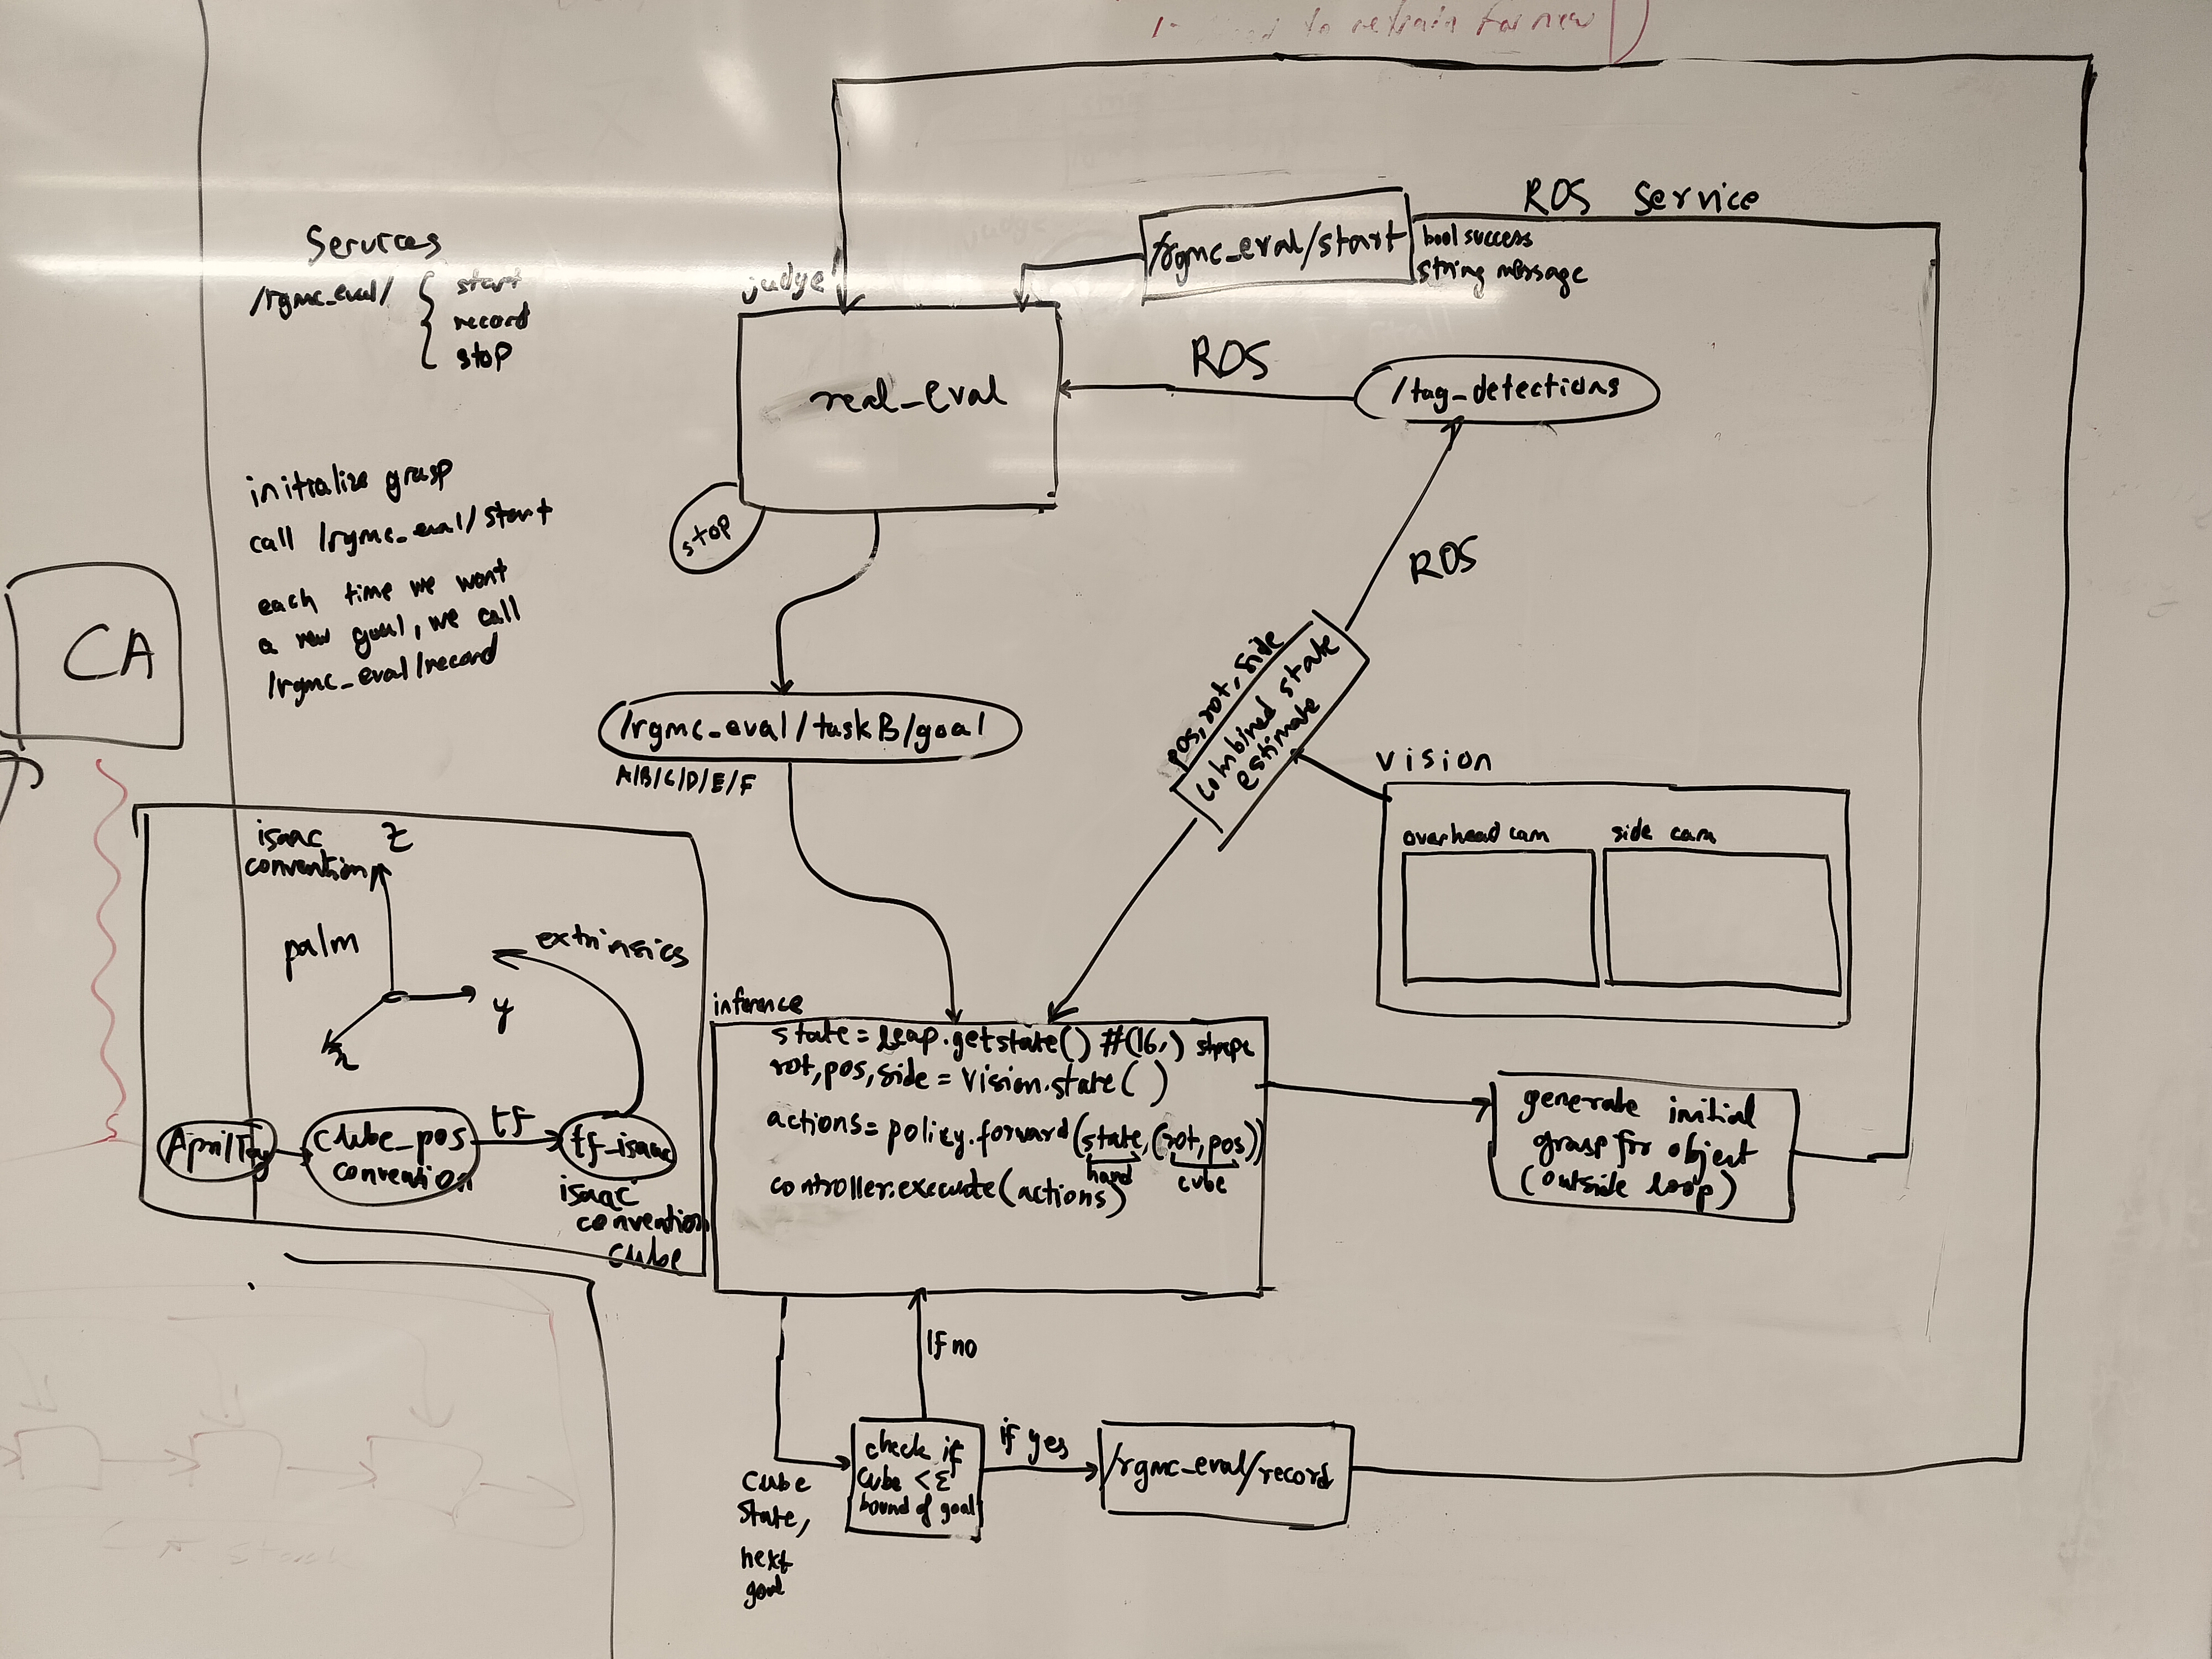 to retrain for new
ROS Service
/rgmc_eval/start
bool success
string message
Services
/rgmc_eval/ { start
record
stop
judge
real_eval
ROS
/tag_detections
stop
initialize grasp
call /rgmc_eval/start
each time we want
a new goal, we call
/rgmc_eval/record
CA
ROS
pos, rot, side
combined state
estimate
/rgmc_eval/taskB/goal
A/B/C/D/E/F
vision
overhead cam
side cam
isaac
convention
z
palm
y
x
extrinsics
AprilTag
cube_pos
convention
tf
tf_isaac
isaac
convention
cube
inference
state = leap.getstate() #(16,) shape
rot, pos, side = vision.state()
actions = policy.forward(state, (rot, pos))
hand
cube
controller.execute(actions)
generate initial
grasp for object
(outside loop)
If no
cube
state,
next
goal
check if
cube < Σ
bound of goal
if yes
/rgmc_eval/record